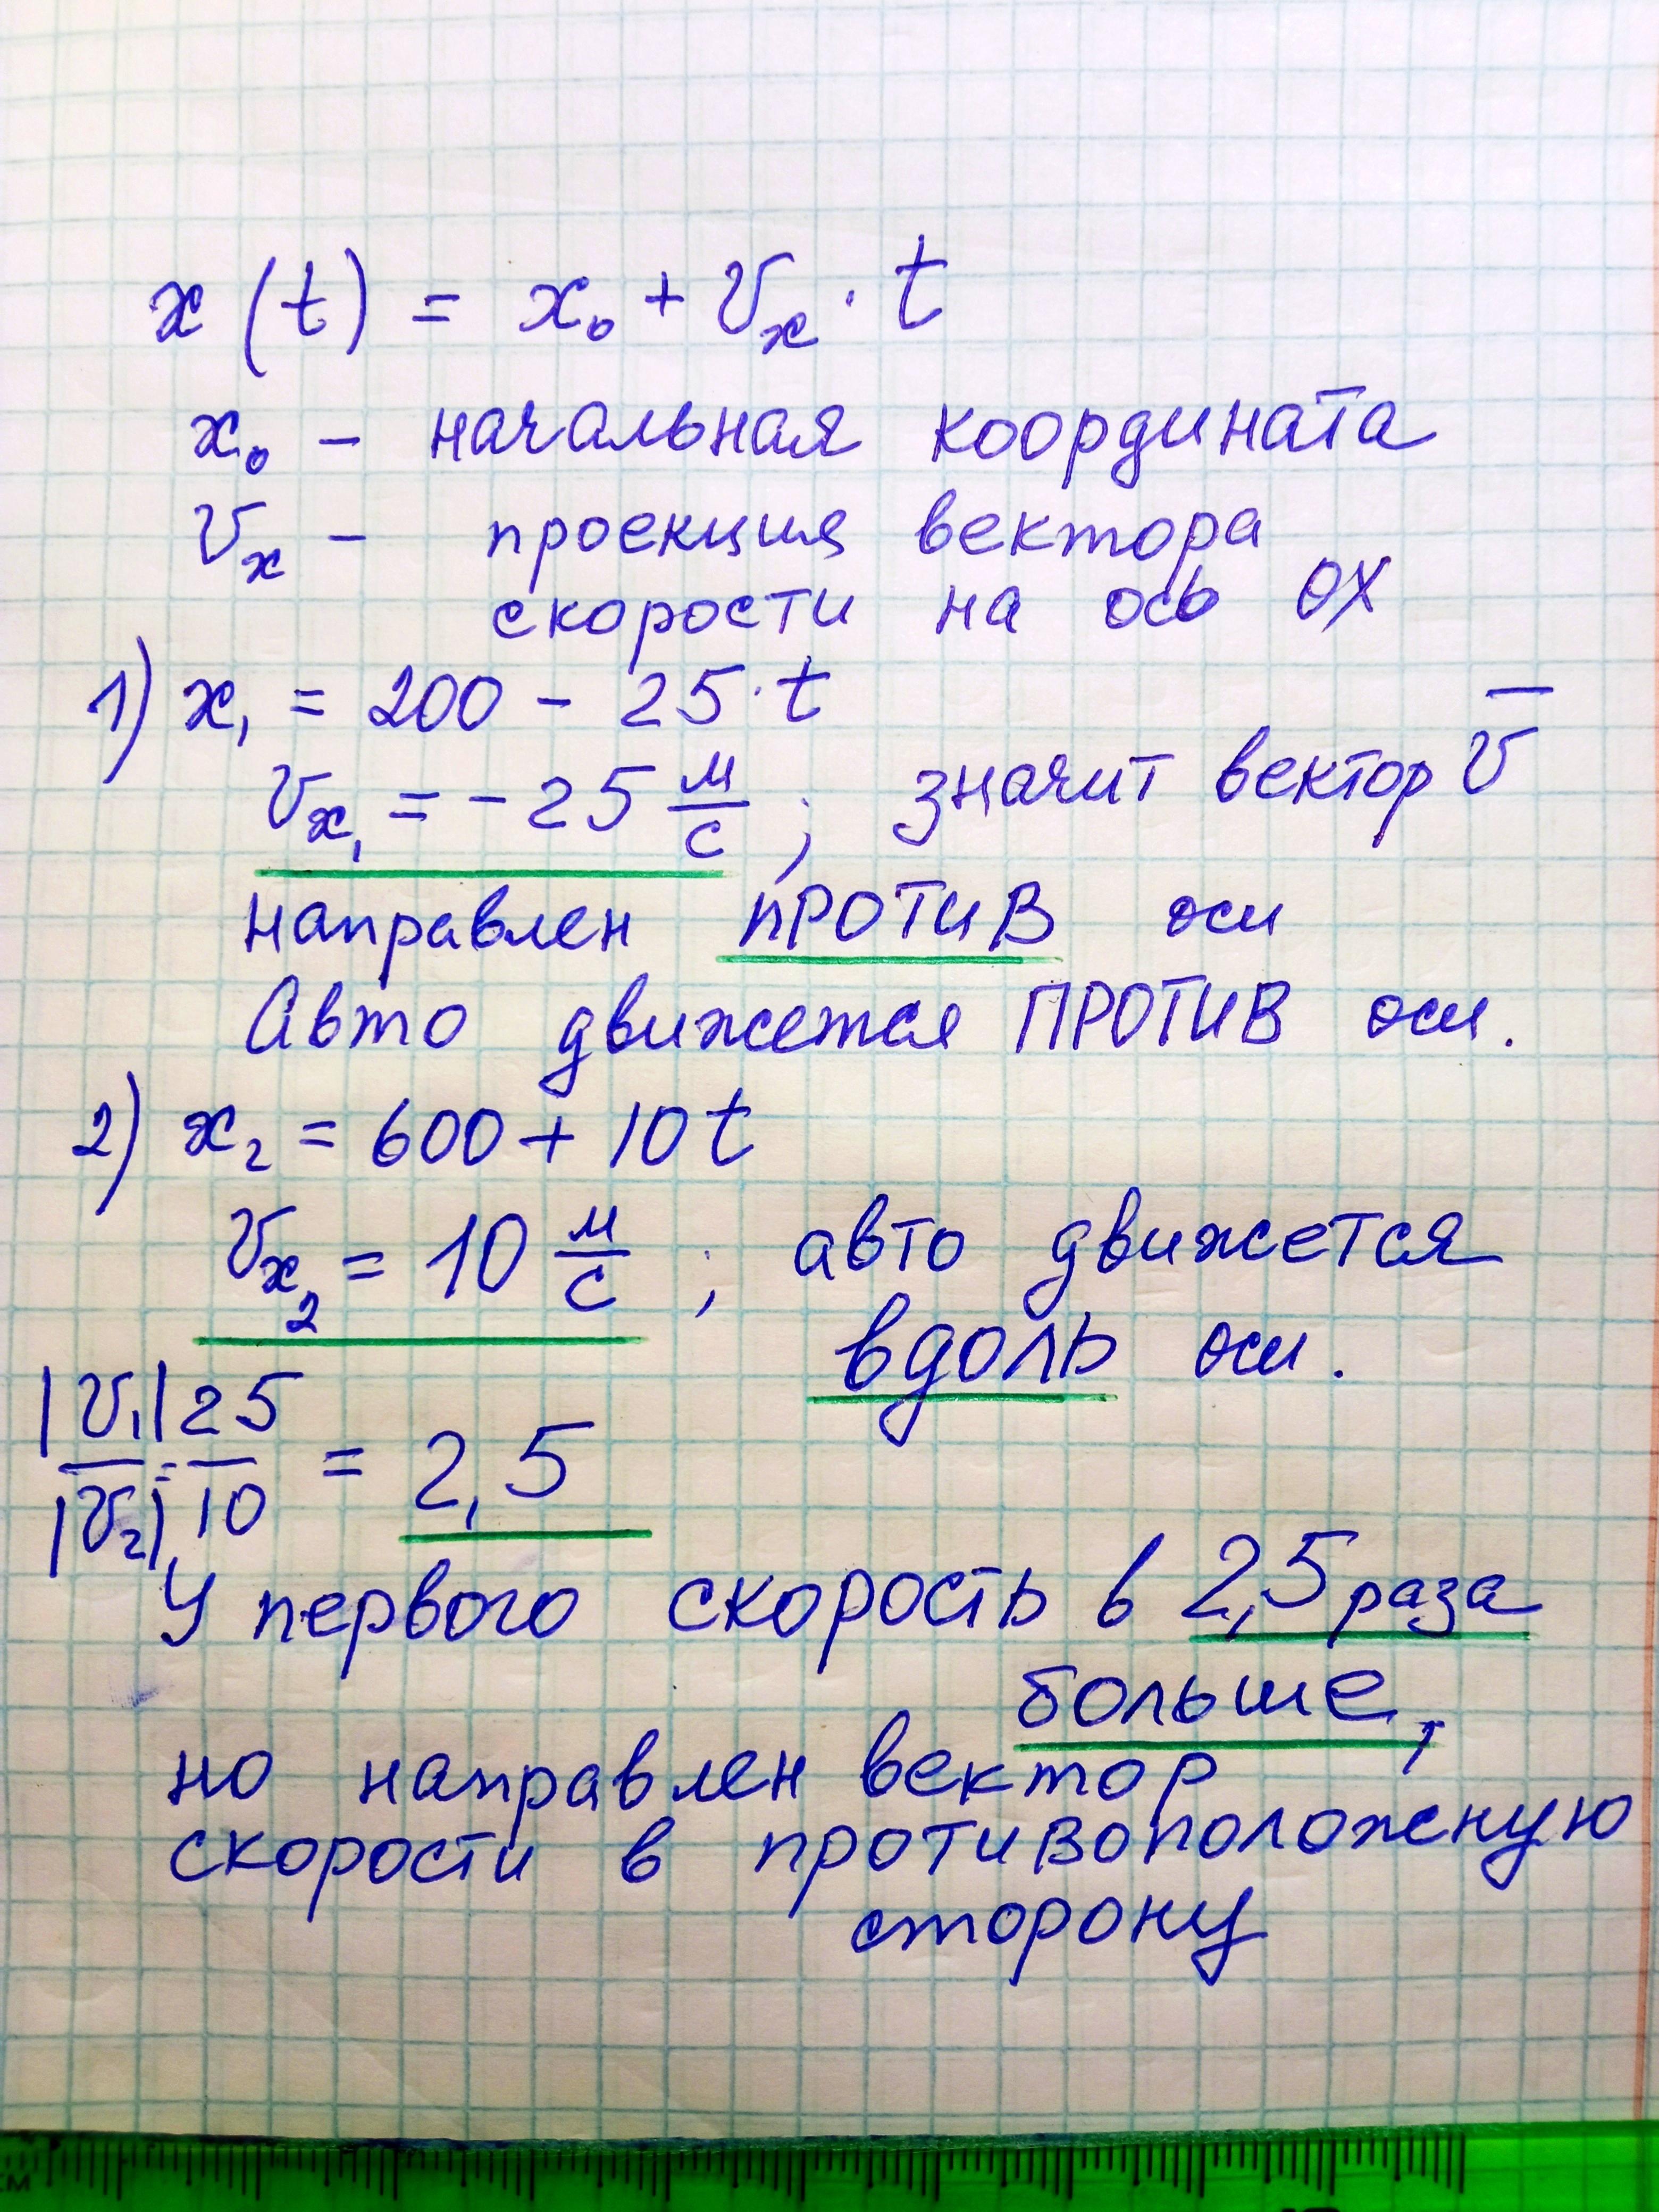 x(t) = x₀ + Vₓ · t
x₀ – начальная координата
Vₓ – проекция вектора
скорости на ось OX
1) x₁ = 200 – 25 · t
Vₓ₁ = – 25 м/с ; значит вектор V̅
направлен ПРОТИВ оси
Авто движется ПРОТИВ оси.
2) x₂ = 600 + 10t
Vₓ₂ = 10 м/с ; авто движется
вдоль оси.
|V₁|/|V₂| = 25/10 = 2,5
У первого скорость в 2,5 раза
больше,
но направлен вектор
скорости в противоположную
сторону
см